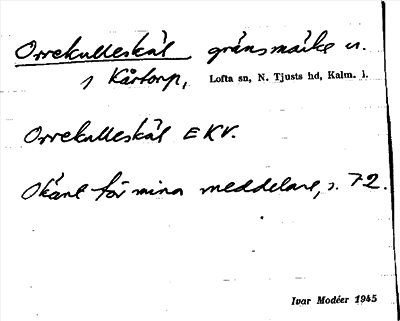 Orrekulleskäl gränsmärke u.
s Kårtorp, Lofta sn, N. Tjusts hd, Kalm. l.
Orrekulleskäl EKV.
Okänt för mina meddelare, s. 72.
Ivar Modéer 1945